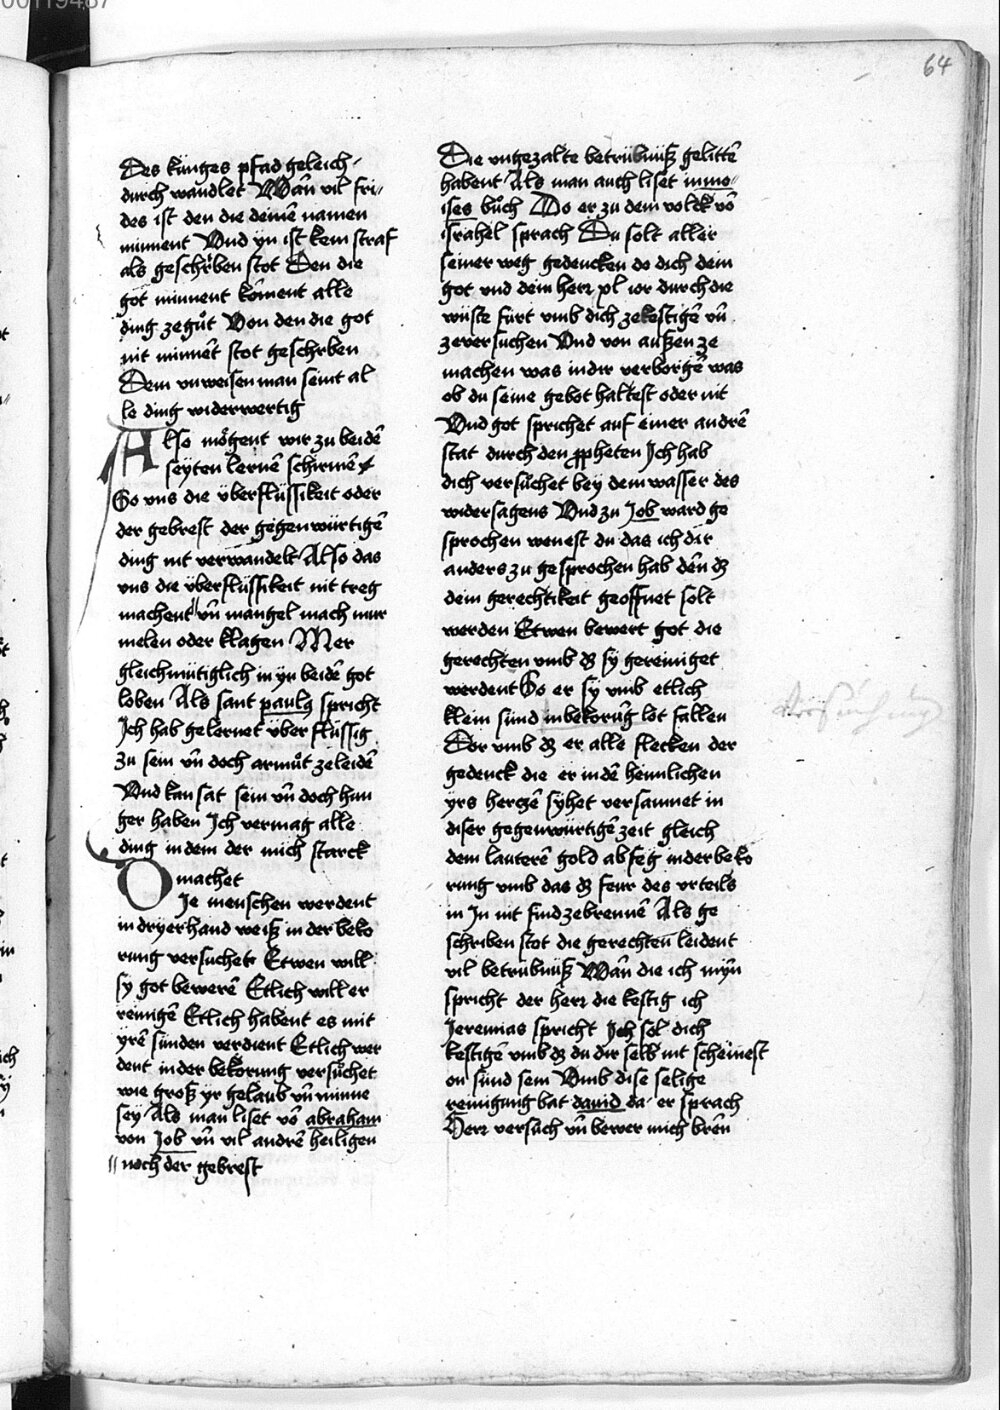 64
Des künges pfad geleich
durch wandlet Wañ vil fri-
des ist den die deinē namen
minnent Vnd yn ist kein straf
als geschrben stot Den die
got minnent kōment alle
ding ze gůt Von den die got
nit minnēt stot geschrben
Dem vnweisen man seint al
le ding widerwertig
Also mögent wir zu beidē
seyten lernē schirmē
So vns die überflüssikeit oder
der gebrest der gegenwürtigē
ding nit verwandelt Also das
vns die überflüssikeit nit treg
machent vñ mangel mach mur
melen oder klagen Mer
gleichmütiglich in yn beidē got
loben Als sant paulꝰ spricht
Ich hab gelernet über flüssig
zu sein vñ doch armůt ze leidē
Vnd kan sat sein vñ doch hun
ger haben Ich vermag alle
ding in dem der mich starck
machet
Die menschen werdent
in dryerhand weiß in der beko
rung versuchet Etwen will
sy got bewerē Etlich will er
reinigē Etlich habent es mit
yrē sünden verdient Etlich wer
dent in der bekorung versůchet
wie groß yr gelaub vñ minne
sey Als man liset vō abraham
von Job vñ vil andrē heiligen
noch der gebrest
Die vngezalte betrübnüß gelittē
habent Als man auch liset in mo-
ises bůch Do er zu dem volck vō
israhel sprach Du solt aller
seiner weg gedencken do dich dein
got vnd dein herr xl ior durch die
wüste fürt vmb dich ze kestigē vñ
ze versuchen Vnd von außen ze
machen was in dir verborgē was
ob du seine gebot haltest oder nit
Vnd got sprichet auf einer andrē
stat durch den ꝓpheten Ich hab
dich versůchet bey dem wasser des
widersagens Vnd zu Job ward ge
sprochen wenest du das ich dir
anders zu gesprochen hab dēn dz
dein gerechtikeit geoffnet solt
werden Etwen bewert got die
gerechten vmb dz sy gereiniget
werdent So er sy vmb etlich
klein sünd in bekorūg lot fallen
Dor vmb dz er alle flecken der
gedenck die er in dē heimlichen
yrs herczē syhet versamnet in
diser gegenwürtigē zeit gleich
dem lauterē gold abfeg in der beko
rung vmb das dz feur des vrteils
in In nit find ze brennē Als ge
schriben stot die gerechten leident
vil betrübnüß Wañ die ich mȳn
spricht der herr die kestig ich
Jeremias spricht Ich sol dich
kestigē vmb dz du dir selb nit scheinest
on sünd sein Vmb dise selige
reinigung bat dauid da er sprach
Herr versůch vñ bewer mich brēn
Versuchung